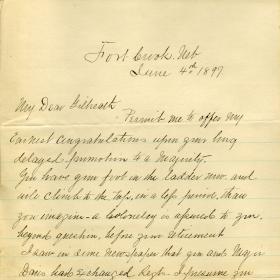 Fort Crook. Neb
June 4th 1899
My Dear Gilreath
Permit me to offer my
Earnest congratulations upon your long
delayed promotion to a Majority.
You have your foot in the ladder now and
will climb to the top, in a less period, than
you imagine - a Colonelcy is assured to you,
beyond question, before your retirement
I saw in some Newspaper that you and Major
Davis had Exchanged Regts. I presume you